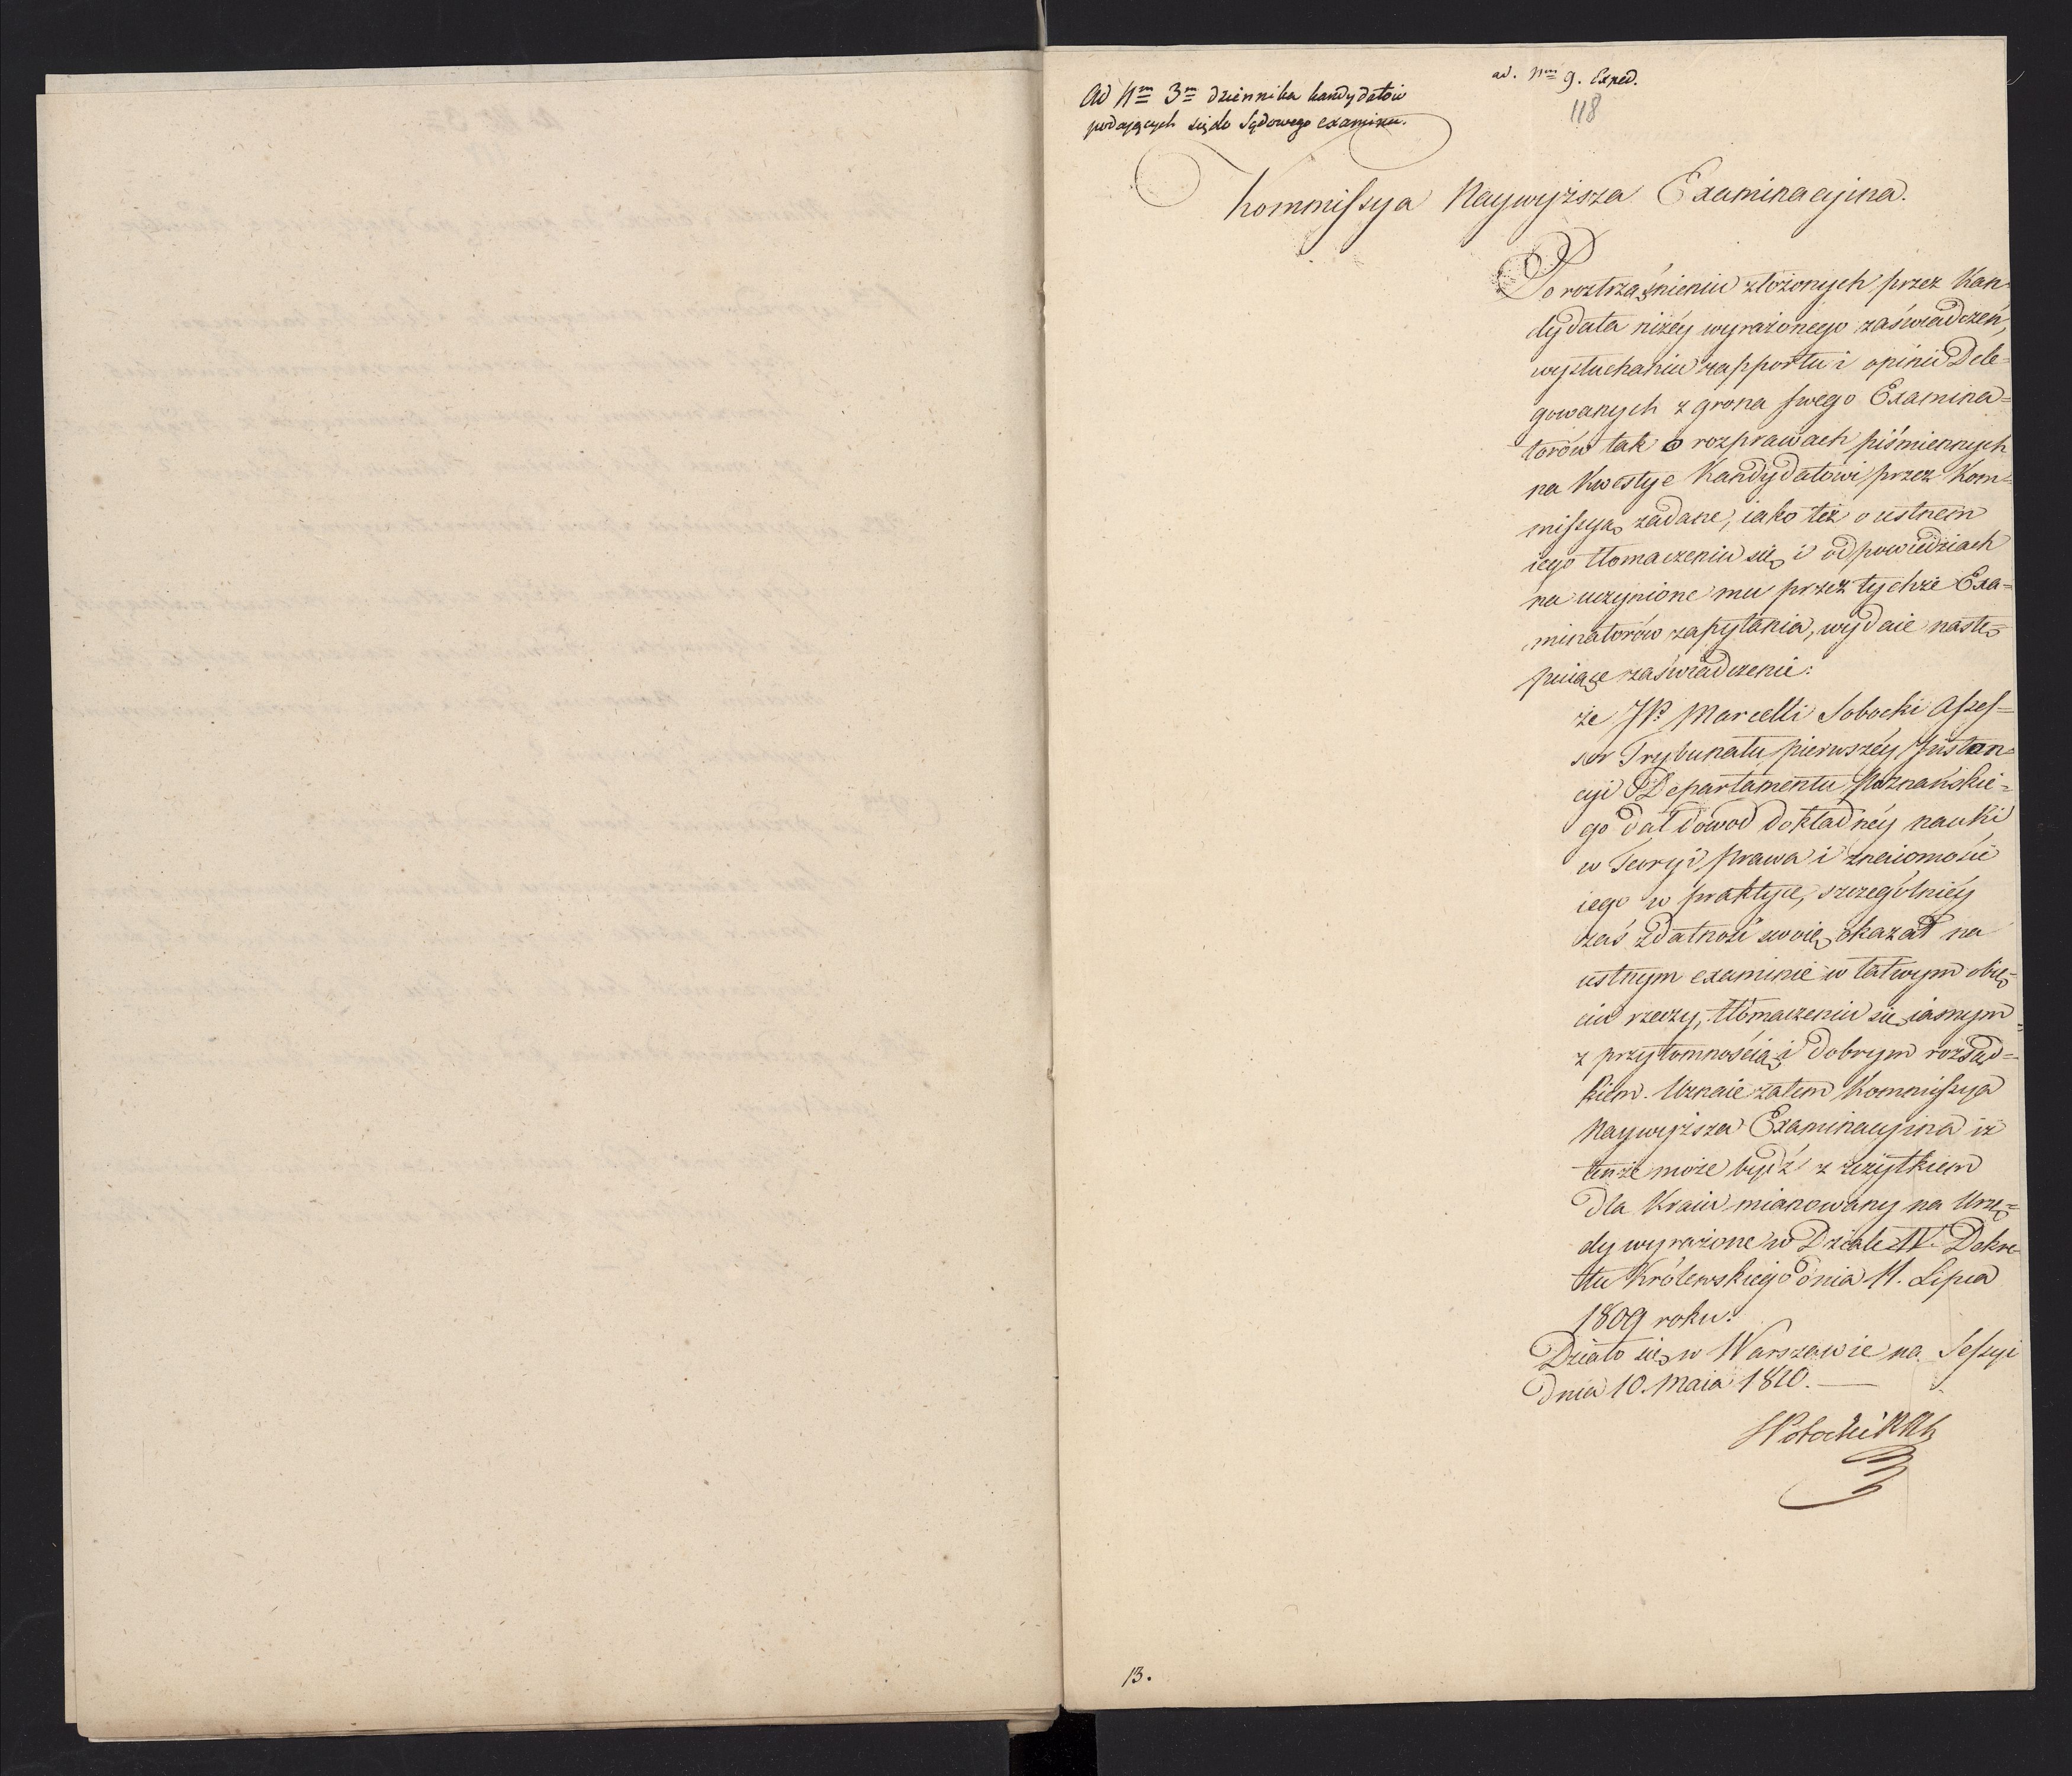 Ad Nm 3m dziennika kandydatów
podających się do Sądowego examinu.
ad. Nm 9. Exped.
118
Kommissya Naywyższa Examinacyina.
Po roztrząśnieniu złożonych przez Kan=
dydata niżéy wyrażonego zaświadczeń,
wysłuchaniu rapportu i opinii Dele=
gowanych z grona swego Examina=
torów tak o rozprawach piśmiennych
na Kwestye Kandydatowi przez Kom=
missyą zadane, iako też o ustném
iego tłomaczeniu się i odpowiedziach
na uczynione mu przez tychże Exa=
minatorów zapytania, wydaie nastę=
puiące zaświadczenie:
że JP. Marcelli Sobocki Assess=
sor Trybunału pierwszéy Instan=
cyi Departamentu Poznańskie=
go dał dowod dokładnéy nauki
w Teoryi prawa i znaiomości
iego w praktyce, szczególniéy
zaś zdatność swoię okazał na
ustnym examinie w łatwym obię=
ciu rzeczy, tłómaczeniu się iasnym
z przytomnością i dobrym rozsąd=
kiem. Uznaie zatem Kommissya
Naywyższa Examinacyina iż
tenże może bydź z użytkiem
dla Kraiu mianowany na Urzę=
dy wyrażone w Dziale IV. Dekre=
tu Królewskiego dnia 11. Lipca
1809 roku.
Działo się w Warszawie na Sessyi
dnia 10. Maia 1810.
13.